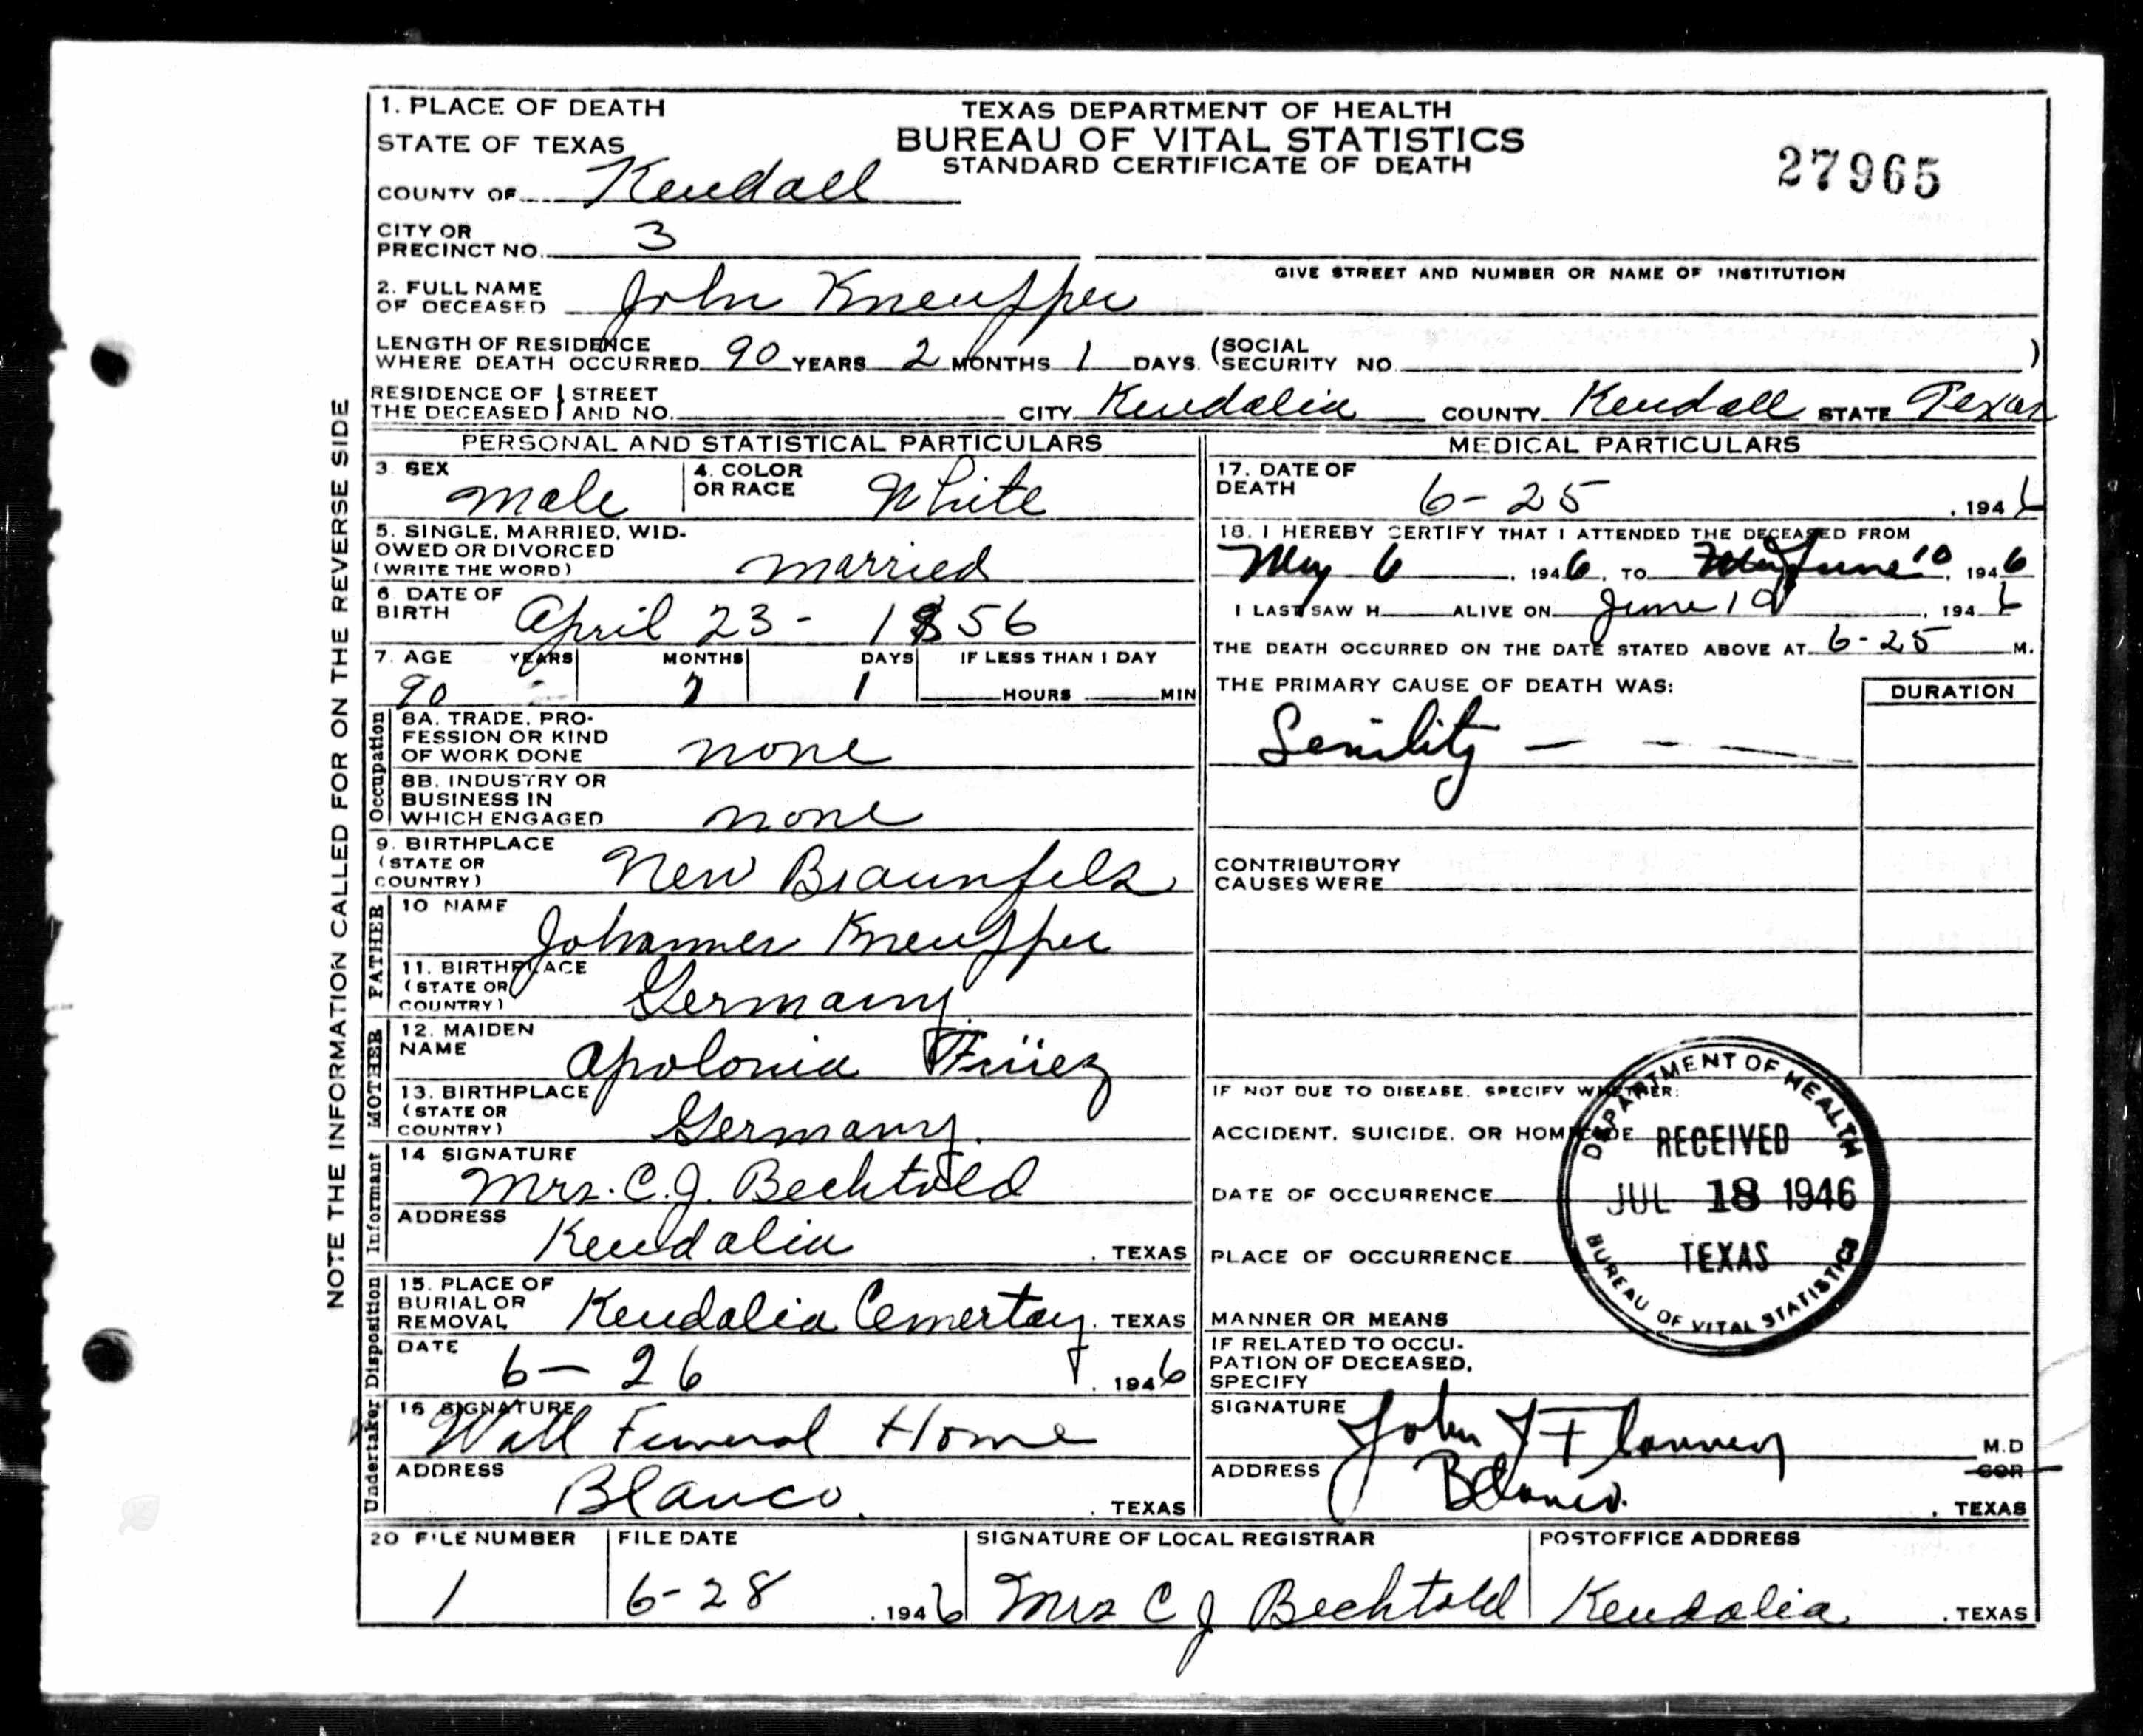 1. PLACE OF DEATH
STATE OF TEXAS
COUNTY OF Kendall
TEXAS DEPARTMENT OF HEALTH
BUREAU OF VITAL STATISTICS
STANDARD CERTIFICATE OF DEATH
27965
CITY OR
PRECINCT NO. 3
GIVE STREET AND NUMBER OR NAME OF INSTITUTION
2. FULL NAME
OF DECEASED John Kneupper
LENGTH OF RESIDENCE
WHERE DEATH OCCURRED 90 YEARS 2 MONTHS 1 DAYS. (SOCIAL SECURITY NO. )
RESIDENCE OF THE DECEASED } STREET AND NO. CITY Kendalia COUNTY Kendall STATE Texas
NOTE THE INFORMATION CALLED FOR ON THE REVERSE SIDE
PERSONAL AND STATISTICAL PARTICULARS
3. SEX
Male
4. COLOR
OR RACE White
5. SINGLE, MARRIED, WID-
OWED OR DIVORCED
(WRITE THE WORD) married
6. DATE OF
BIRTH April 23 - 1856
7. AGE YEARS MONTHS DAYS IF LESS THAN 1 DAY
90 2 1 HOURS MIN
Occupation
8A. TRADE, PRO-
FESSION OR KIND
OF WORK DONE none
8B. INDUSTRY OR
BUSINESS IN
WHICH ENGAGED none
9. BIRTHPLACE
(STATE OR
COUNTRY) New Braunfels
FATHER
10 NAME
Johannes Kneupper
11. BIRTHPLACE
(STATE OR
COUNTRY) Germany
MOTHER
12. MAIDEN
NAME Apolonia
13. BIRTHPLACE
(STATE OR
COUNTRY) Germany.
Informant
14 SIGNATURE
Mrs. C. J. Bechtold
ADDRESS
Kendalia . TEXAS
Disposition
15. PLACE OF
BURIAL OR
REMOVAL Kendalia Cemertay . TEXAS
DATE
6 - 26 . 1946
Undertaker
16 SIGNATURE
Wall Funeral Home
ADDRESS
Blanco . TEXAS
MEDICAL PARTICULARS
17. DATE OF
DEATH 6 - 25 . 1946
18. I HEREBY CERTIFY THAT I ATTENDED THE DECEASED FROM
May 6 , 1946, TO June 10, 1946
I LAST SAW H ALIVE ON June 10 , 1946
THE DEATH OCCURRED ON THE DATE STATED ABOVE AT 6-25 M.
THE PRIMARY CAUSE OF DEATH WAS: DURATION
Senility - - -
CONTRIBUTORY
CAUSES WERE
IF NOT DUE TO DISEASE, SPECIFY WHETHER:
ACCIDENT, SUICIDE, OR HOMICIDE
DATE OF OCCURRENCE
PLACE OF OCCURRENCE
MANNER OR MEANS
IF RELATED TO OCCU-
PATION OF DECEASED,
SPECIFY
DEPARTMENT OF HEALTH
RECEIVED
JUL 18 1946
TEXAS
BUREAU OF VITAL STATISTICS
SIGNATURE John M.D
ADDRESS COR
Blanco. . TEXAS
20 FILE NUMBER
1
FILE DATE
6-28 . 1946
SIGNATURE OF LOCAL REGISTRAR
Mrs C J Bechtold
POSTOFFICE ADDRESS
Kendalia . TEXAS